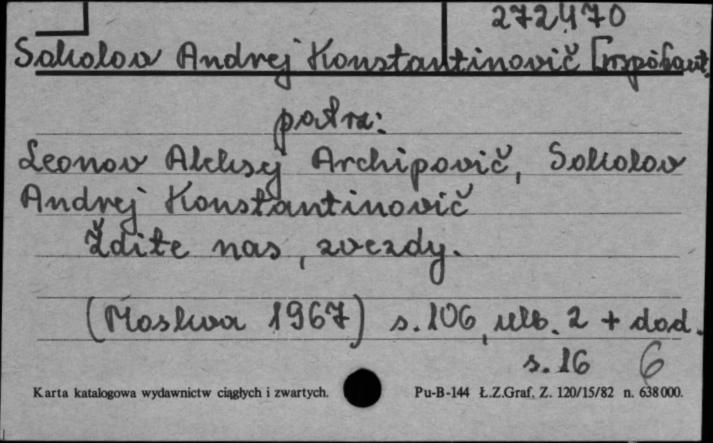 272470
Sokolov Andrej Konstantinovič [współaut.
patrz:
Leonov Aleksej Archipovič, Sokolov
Andrej Konstantinovič
Ždite nas, zvezdy.
(Moskva 1967) s. 106, ulb. 2 + dod.
s. 16 6
Karta katalogowa wydawnictw ciągłych i zwartych. Pu-B-144 Ł.Z.Graf. Z. 120/15/82 n. 638000.